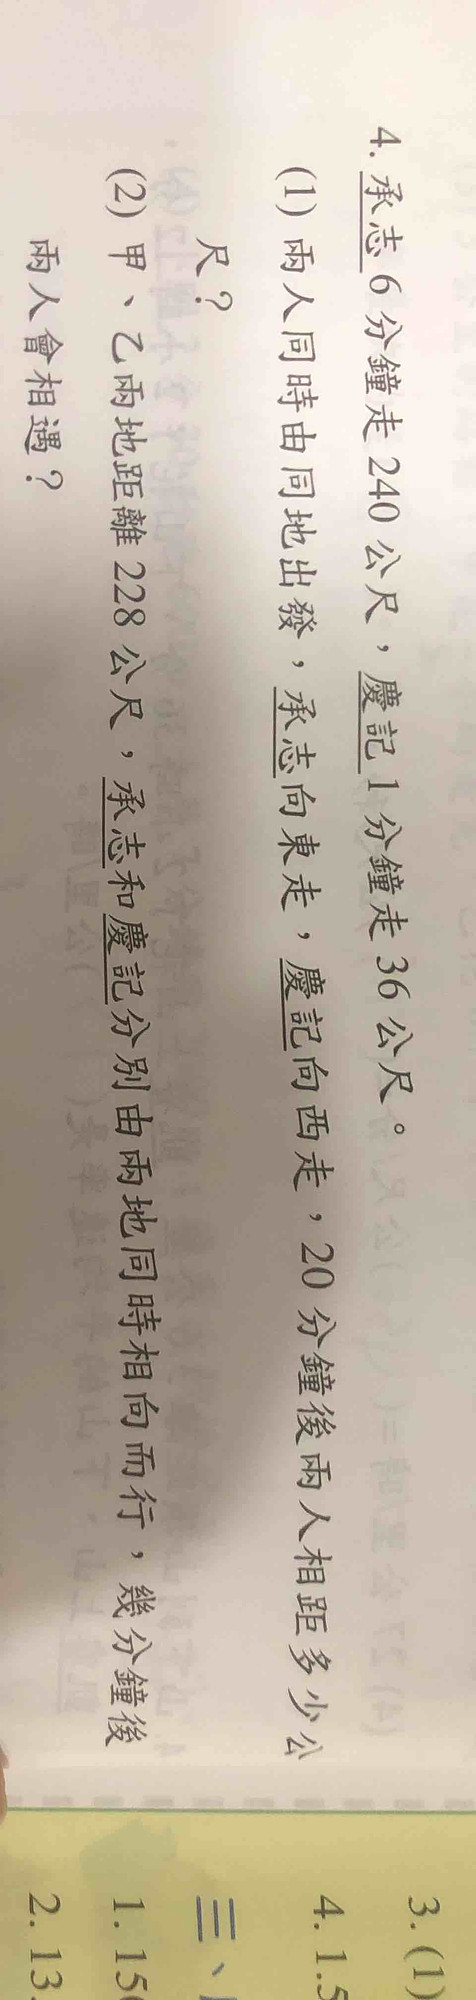 4. 承志 6 分鐘走 240 公尺，慶記 1 分鐘走 36 公尺。
(1) 兩人同時由同地出發，承志向東走，慶記向西走，20 分鐘後兩人相距多少公
尺？
(2) 甲、乙兩地距離 228 公尺，承志和慶記分別由兩地同時相向而行，幾分鐘後
兩人會相遇？
3. (1)
4. 1.5
三、
1. 15
2. 13.